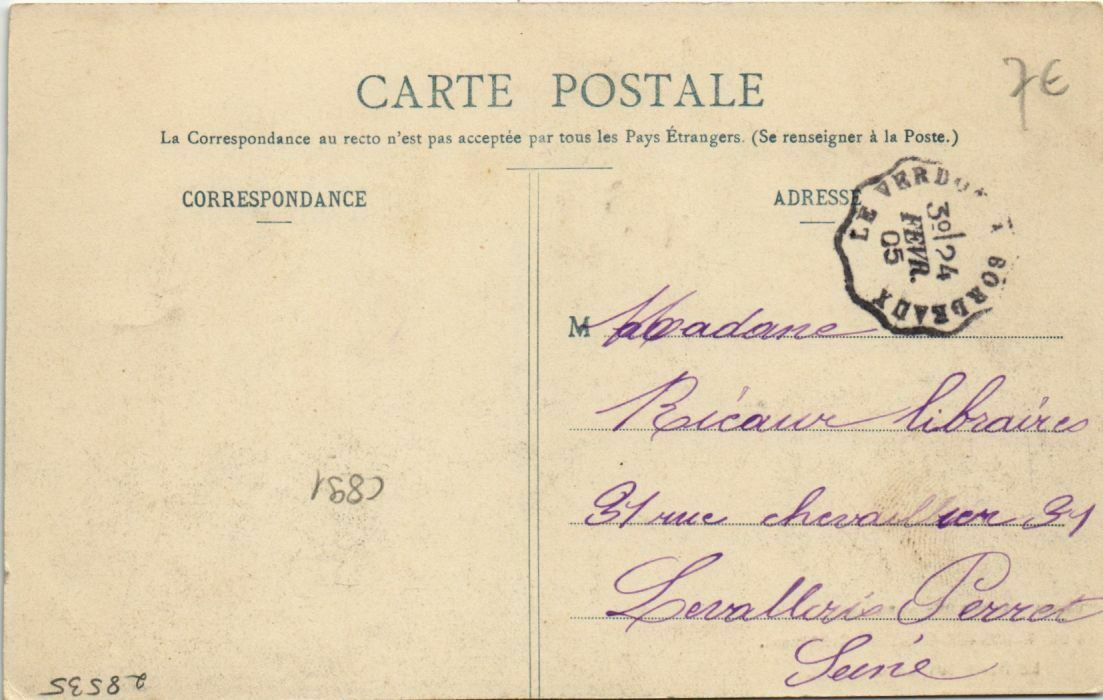 CARTE POSTALE
7€
La Correspondance au recto n'est pas acceptée par tous les Pays Étrangers. (Se renseigner à la Poste.)
CORRESPONDANCE
ADRESSE
LE VERDON A BORDEAUX
3º/24
FEVR.
05
M Madane
Ricaur libraires
31 rue chevaillier 31
Levallois Perret
Seine
C891
28535